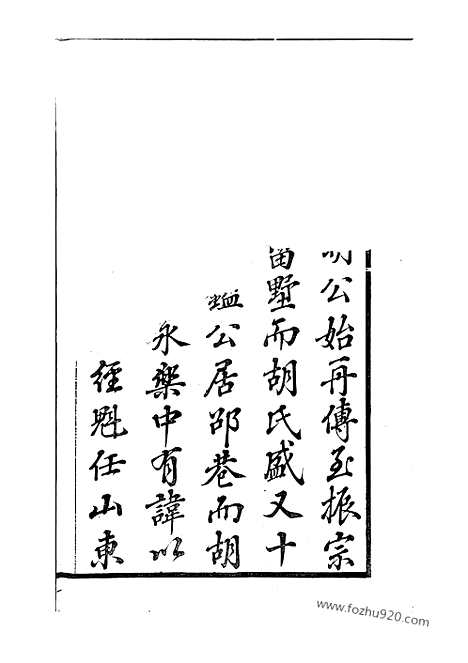 公始再傳至振宗
墅而胡氏盛又十
公居邵巷而胡
永樂中有諱以
經魁任山東
www.fozhu920.com